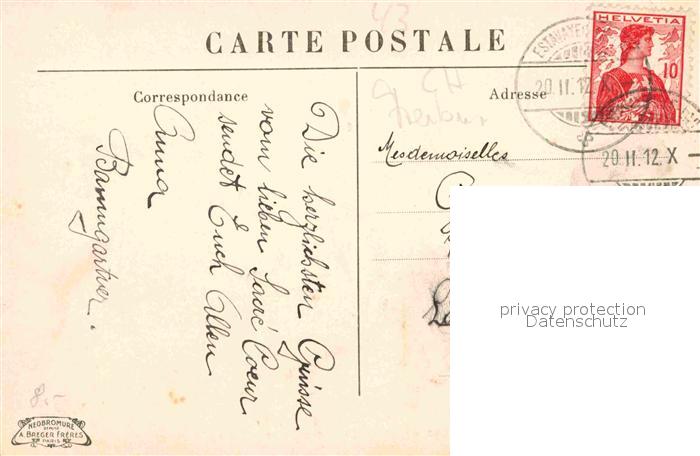 43
CARTE POSTALE
HELVETIA
10
ESTAVAYER
20.II.12.X
20.II.12.X
Correspondance
Adresse
CH
Die herzlichsten Grüsse
vom lieben Sacré Coeur
sendet Euch Allen
Anna
Baumgartner.
Mesdemoiselles
privacy protection
Datenschutz
8.-
NEOBROMURE
A. BREGER FRÈRES
PARIS